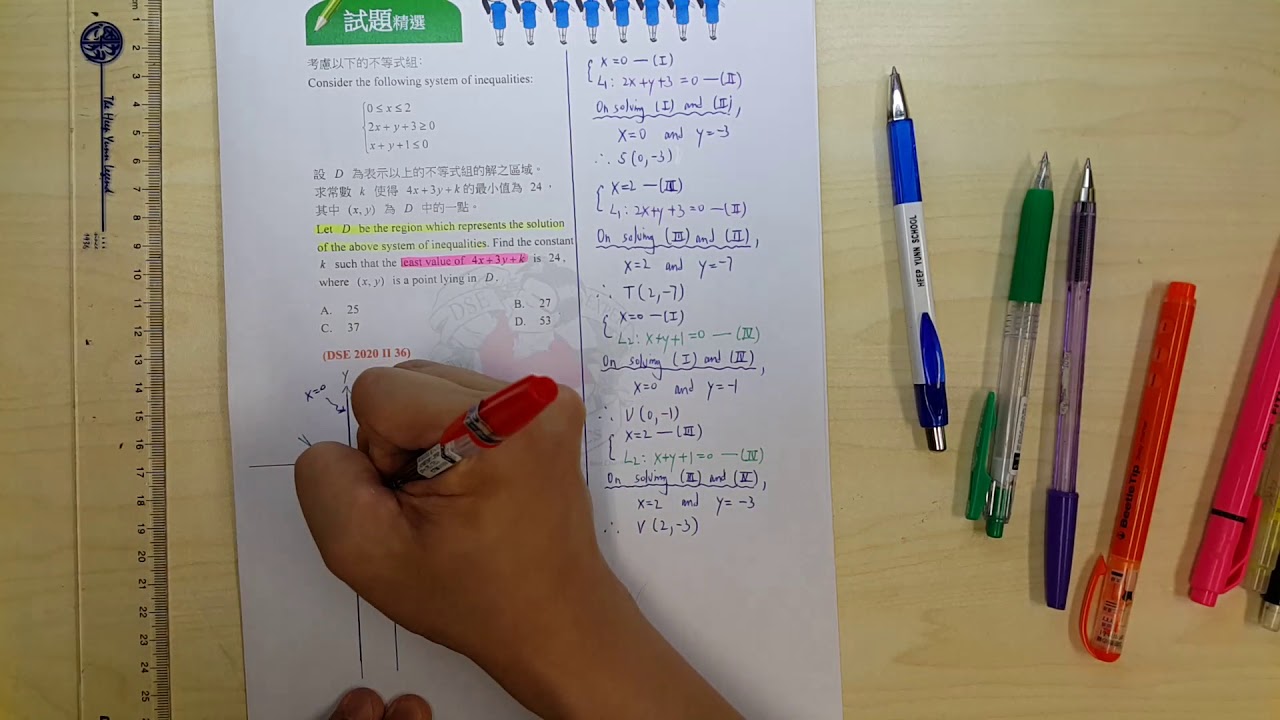 試題精選
考慮以下的不等式組:
Consider the following system of inequalities:
0 ≤ x ≤ 2
2x + y + 3 ≥ 0
x + y + 1 ≤ 0
設 D 為表示以上的不等式組的解之區域。
求常數 k 使得 4x+3y+k 的最小值為 24，
其中 (x, y) 為 D 中的一點。
Let D be the region which represents the solution
of the above system of inequalities. Find the constant
k such that the least value of 4x+3y+k is 24,
where (x, y) is a point lying in D.
A. 25
B. 27
C. 37
D. 53
(DSE 2020 II 36)
y
x=0
x=0 — (I)
L1: 2x+y+3=0 — (II)
On solving (I) and (II),
x=0 and y=-3
∴ S(0,-3)
x=2 — (III)
L1: 2x+y+3=0 — (II)
On solving (III) and (II),
x=2 and y=-7
∴ T(2,-7)
x=0 — (I)
L2: x+y+1=0 — (IV)
On solving (I) and (IV),
x=0 and y=-1
∴ U(0,-1)
x=2 — (III)
L2: x+y+1=0 — (IV)
On solving (III) and (IV),
x=2 and y=-3
∴ V(2,-3)
The Heep Yunn Legend
1936
1
2
3
4
5
6
7
8
9
10
11
12
13
14
15
16
17
18
19
20
21
22
23
24
25
HEEP YUNN SCHOOL
BeetleTip
DSE